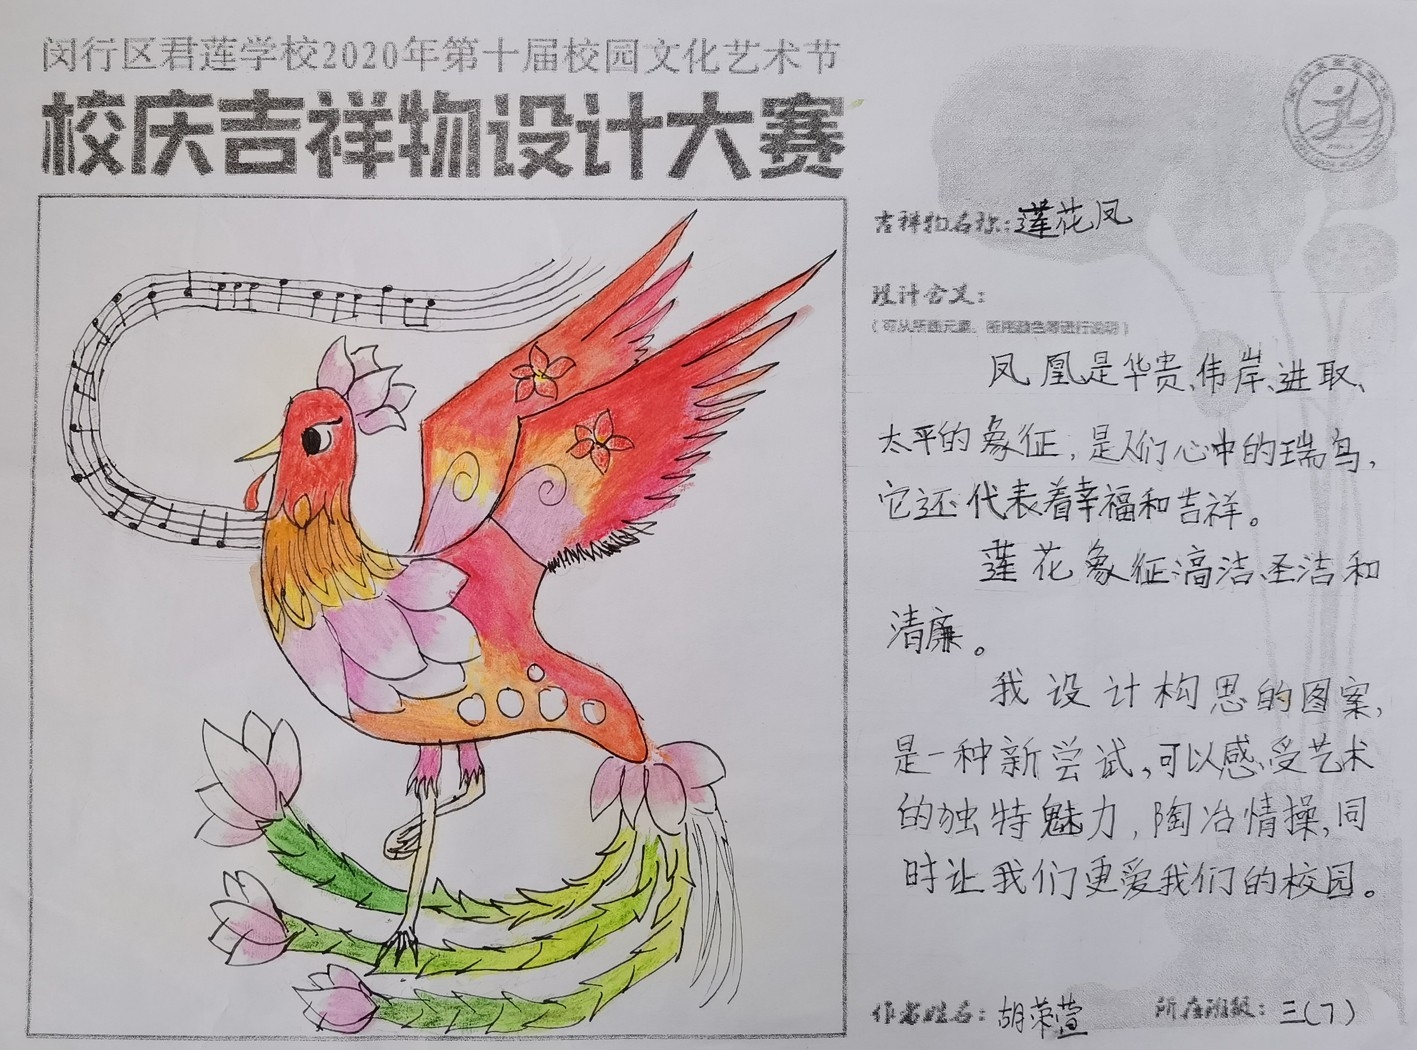 闵行区君莲学校2020年第十届校园文化艺术节
校庆吉祥物设计大赛
吉祥物名称：莲花凤
设计含义：
（可从所画元素、所用颜色等进行说明）
凤凰是华贵、伟岸、进取、
太平的象征，是人们心中的瑞鸟，
它还代表着幸福和吉祥。
莲花象征高洁、圣洁和
清廉。
我设计构思的图案，
是一种新尝试，可以感受艺术
的独特魅力，陶冶情操，同
时让我们更爱我们的校园。
作者姓名：胡荣萱
所在班级：三（7）